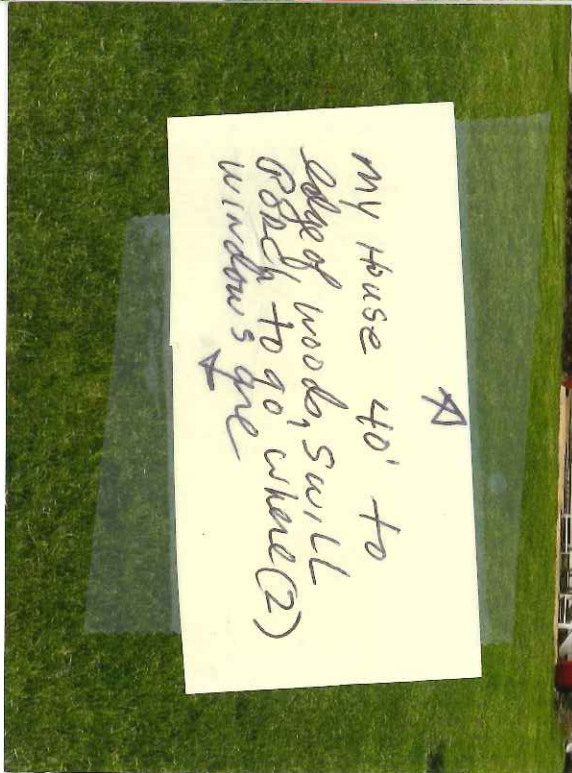 My House 40' to
edge of woods, SWILL
Porch to go, where (2)
windows are